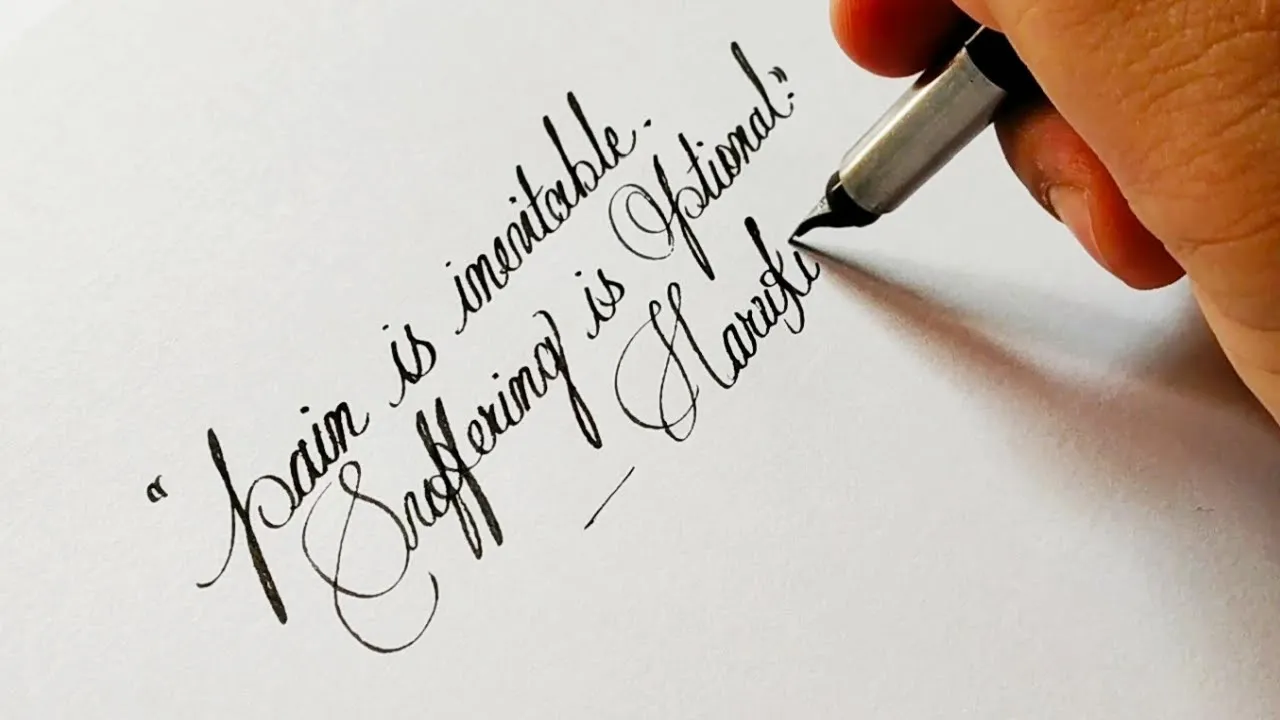 "pain is inevitable.
Suffering is Optional"
— Haruki